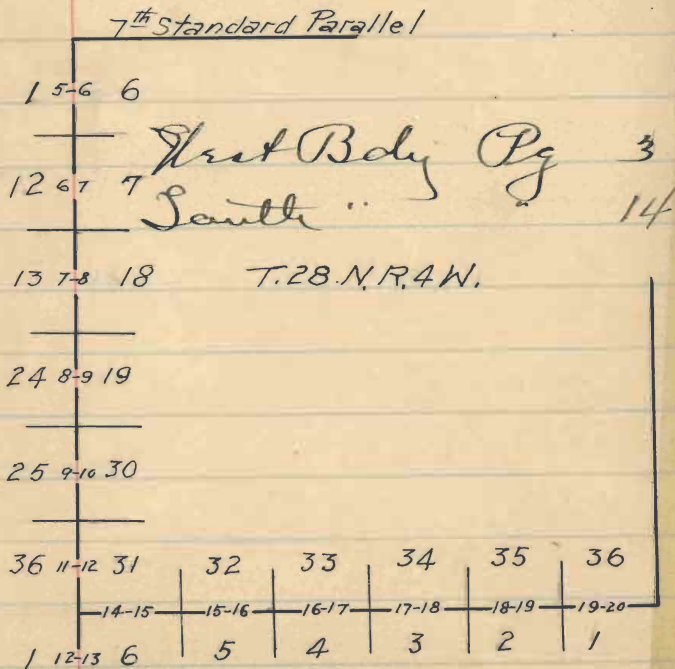 7th Standard Parallel
1 5-6 6
West Bdy Pg 3
12 6 7 7
South " " 14
13 7-8 18 T.28.N.R.4W.
24 8-9 19
25 9-10 30
36 11-12 31 32 33 34 35 36
14-15 15-16 16-17 17-18 18-19 19-20
1 12-13 6 5 4 3 2 1